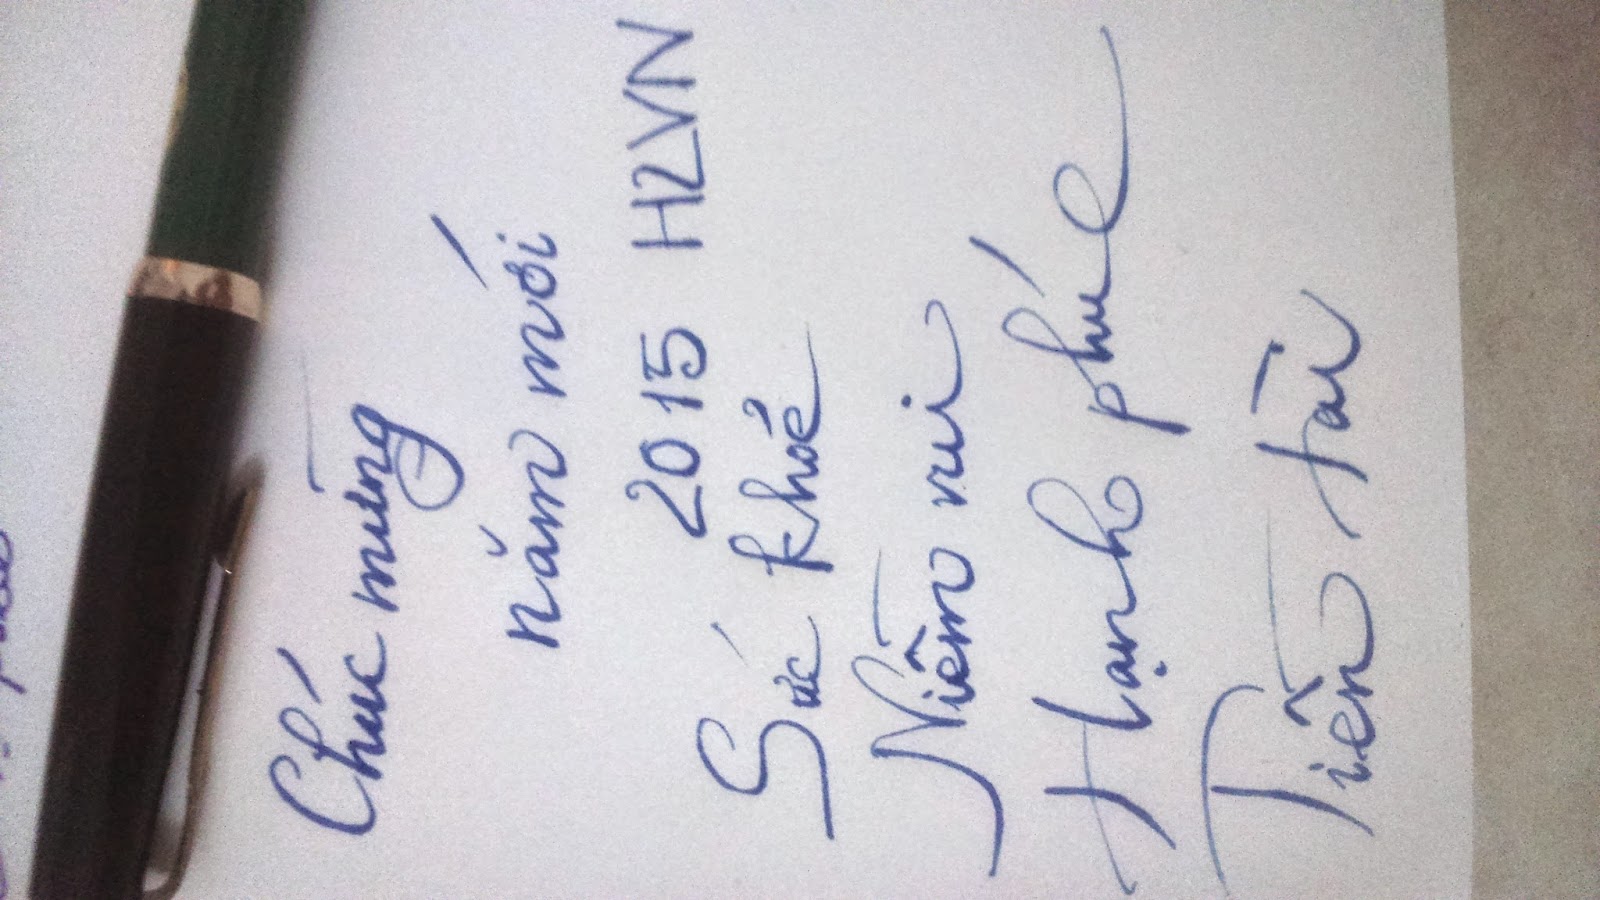 Chúc mừng
năm mới
2015 HLVN
Sức khoẻ
Niềm vui
Hạnh phúc
Tiền tài